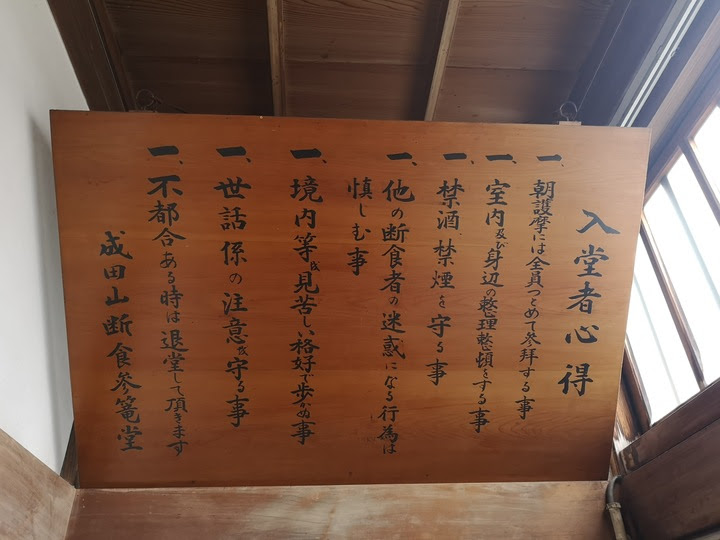 入堂者心得
一、朝護摩には全員つとめて参拝する事
一、室内及び身辺の整理整頓をする事
一、禁酒、禁煙を守る事
一、他の断食者の迷惑になる行為は
慎しむ事
一、境内等を見苦しい格好で歩かぬ事
一、世話係の注意を守る事
一、不都合ある時は退堂して頂きます
成田山断食参篭堂